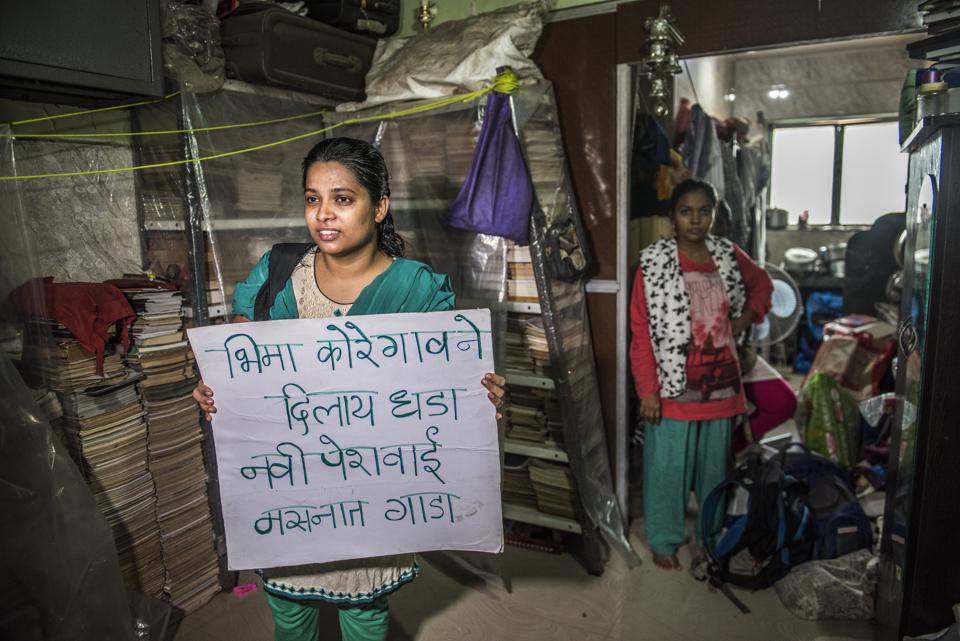 भिमा कोरेगावने
दिलाय धडा
नवी पेशवाई
मसनात गाडा